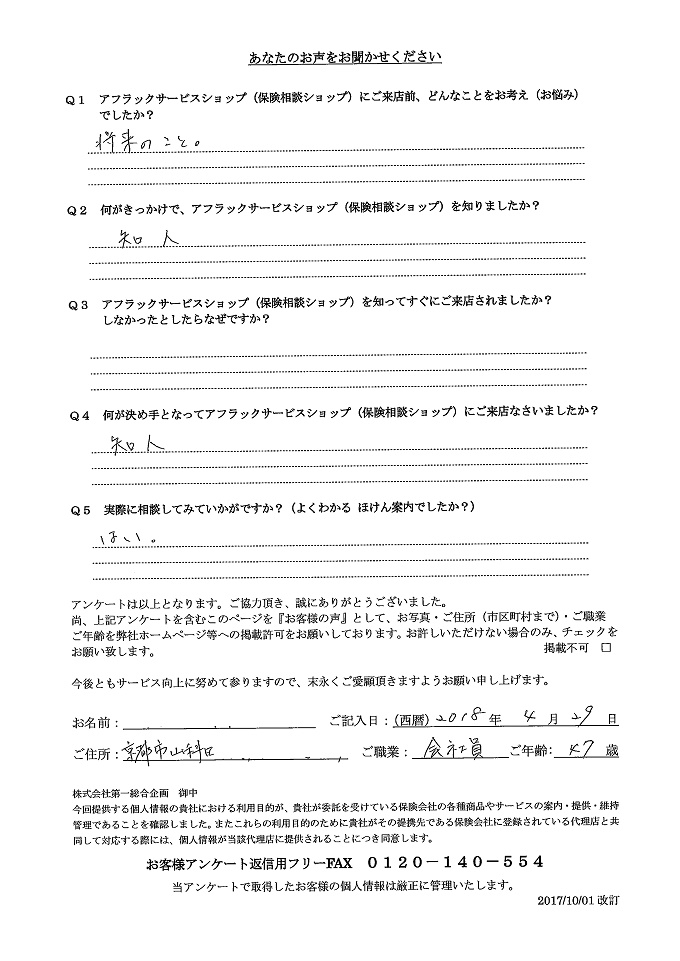 あなたのお声をお聞かせください
Q1 アフラックサービスショップ（保険相談ショップ）にご来店前、どんなことをお考え（お悩み）
でしたか？
将来のこと。
Q2 何がきっかけで、アフラックサービスショップ（保険相談ショップ）を知りましたか？
知人
Q3 アフラックサービスショップ（保険相談ショップ）を知ってすぐにご来店されましたか？
しなかったとしたらなぜですか？
Q4 何が決め手となってアフラックサービスショップ（保険相談ショップ）にご来店なさいましたか？
知人
Q5 実際に相談してみていかがですか？（よくわかる ほけん案内でしたか？）
はい。
アンケートは以上となります。ご協力頂き、誠にありがとうございました。
尚、上記アンケートを含むこのページを『お客様の声』として、お写真・ご住所（市区町村まで）・ご職業
ご年齢を弊社ホームページ等への掲載許可をお願いしております。お許しいただけない場合のみ、チェックを
お願い致します。 掲載不可 □
今後ともサービス向上に努めて参りますので、末永くご愛顧頂きますようお願い申し上げます。
お名前： ご記入日：（西暦）2018年 4月 29日
ご住所：京都市山科区 ご職業：会社員 ご年齢：47歳
株式会社第一総合企画 御中
今回提供する個人情報の貴社における利用目的が、貴社が委託を受けている保険会社の各種商品やサービスの案内・提供・維持
管理であることを確認しました。またこれらの利用目的のために貴社がその提携先である保険会社に登録されている代理店と共
同して対応する際には、個人情報が当該代理店に提供されることにつき同意します。
お客様アンケート返信用フリーFAX 0120－140－554
当アンケートで取得したお客様の個人情報は厳正に管理いたします。
2017/10/01 改訂